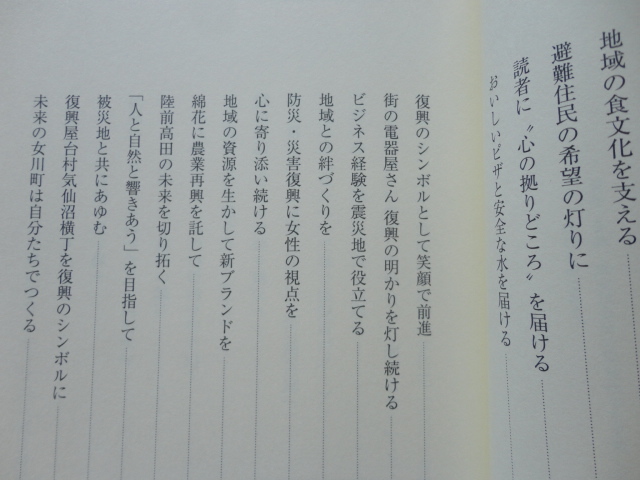 地域の食文化を支える
避難住民の希望の灯りに
読者に〝心の拠りどころ〟を届ける
おいしいピザと安全な水を届ける
復興のシンボルとして笑顔で前進
街の電器屋さん 復興の明かりを灯し続ける
ビジネス経験を震災地で役立てる
地域との絆づくりを
防災・災害復興に女性の視点を
心に寄り添い続ける
地域の資源を生かして新ブランドを
綿花に農業再興を託して
陸前高田の未来を切り拓く
「人と自然と響きあう」を目指して
被災地と共にあゆむ
復興屋台村気仙沼横丁を復興のシンボルに
未来の女川町は自分たちでつくる